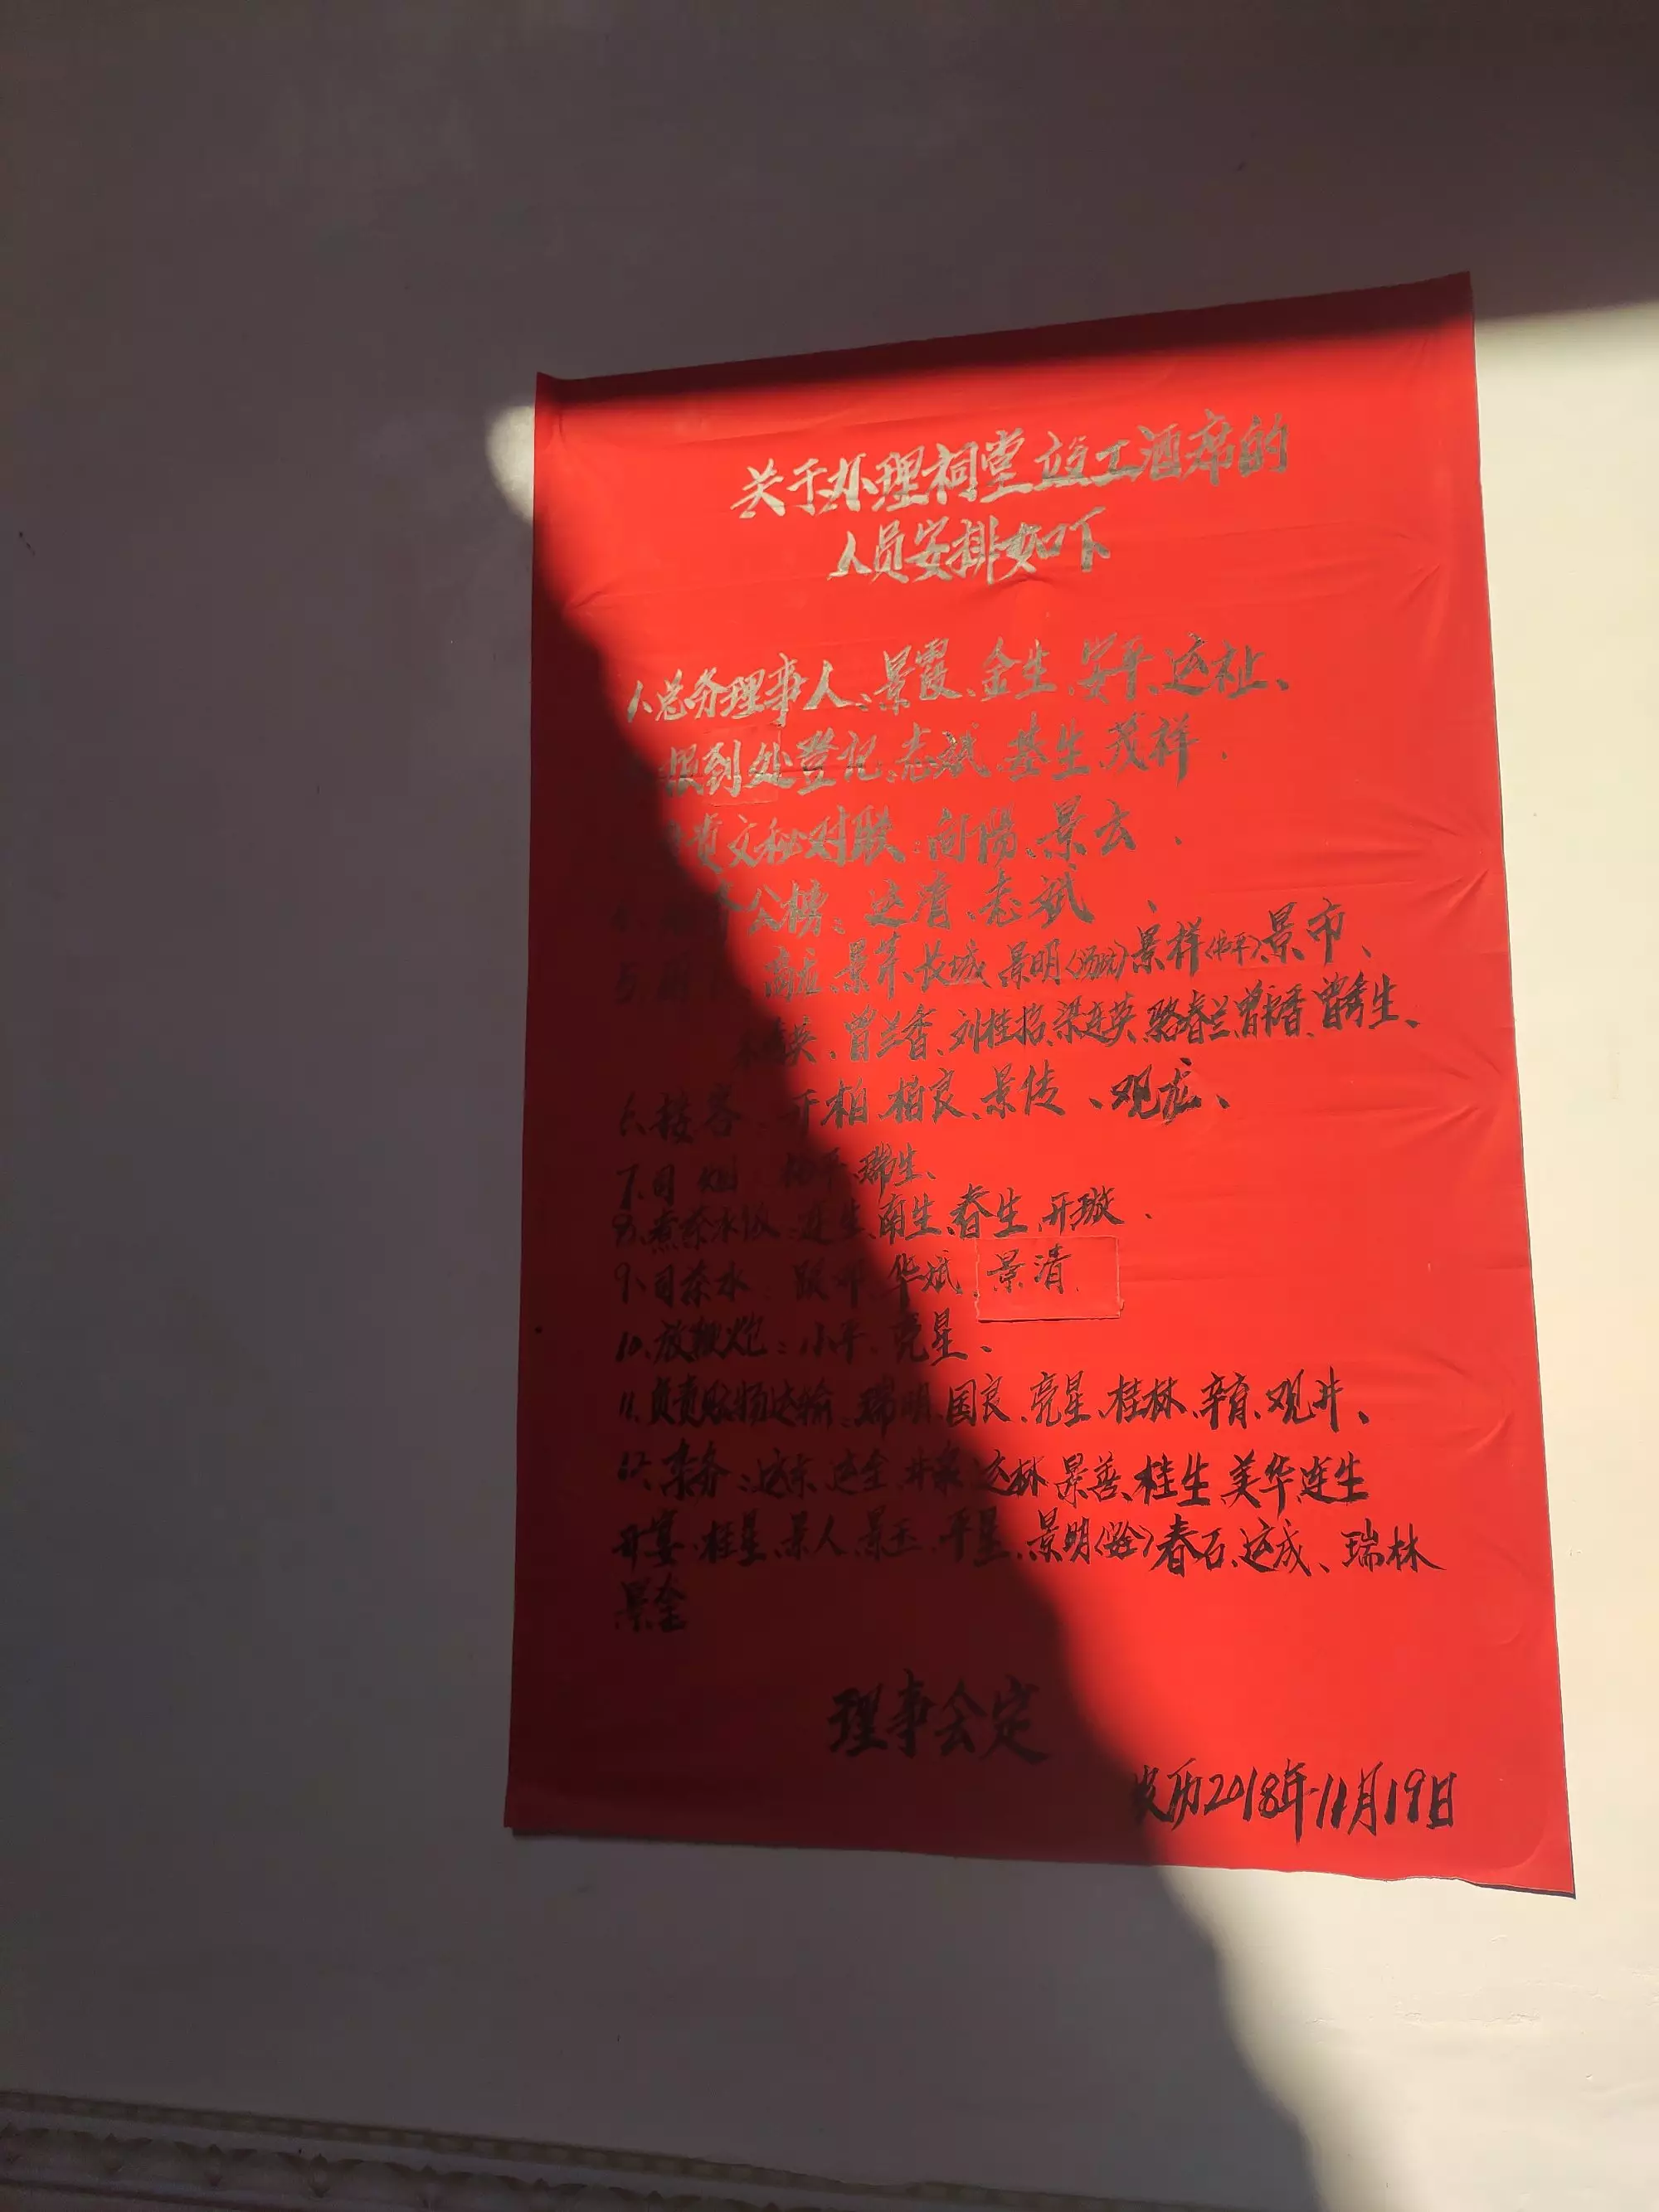 关于办理祠堂竣工酒席的
人员安排如下
1、总务理事人：景霞、金生、安平、达祉、
报到处登记：志斌、基生、茂祥．
责文秘对联：向阳、景云、
公榜：达清、志斌、
景芹、长城、景明景样景币、
英、曾兰香、刘桂招、梁连英、骆春兰、曾香、曾秀生、
6、接客：开柏、柏良、景传、观龙、
7、司烟 平、瑞生、
8、煮茶水饭：进生、南生、春生、开璇．
9、司茶水 华斌、景清
10、放鞭炮：小平、亮星、
11、负责购物运输：瑞明、国良、亮星、桂林、辛有、观井、
12、杂务：达东、达金、达林、景善、桂生、美华、连生
桂星、景人、景玉、平星、景明春石、达成、瑞林
景金
理事会定
农历2018年11月19日